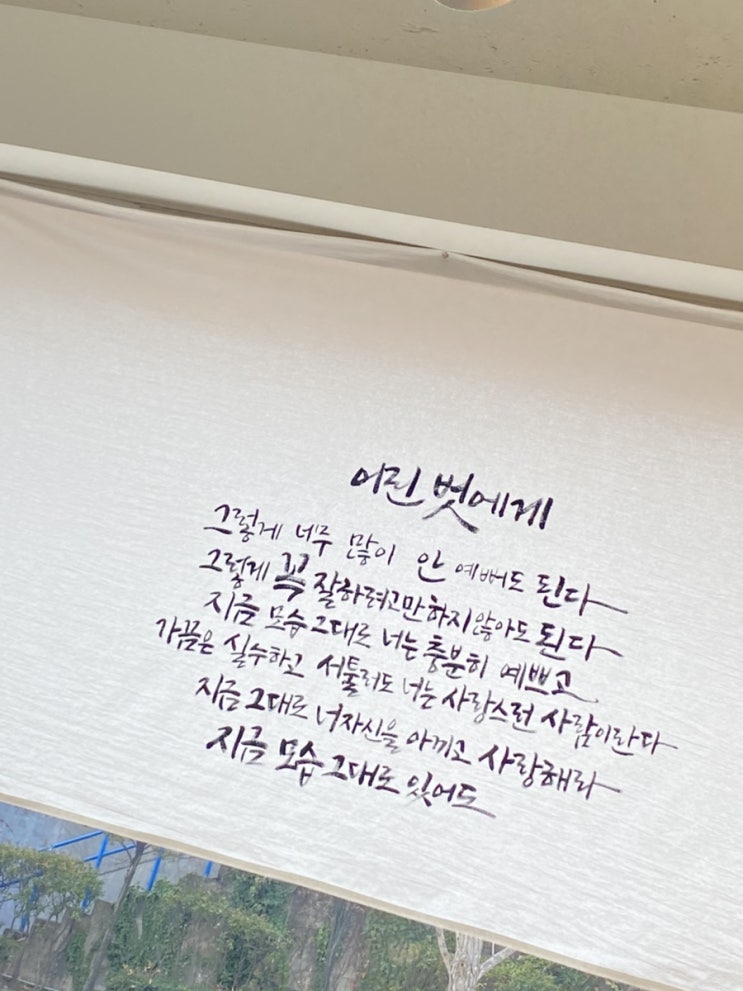 어린 벗에게
그렇게 너무 많이 안 예뻐도 된다
그렇게 꼭 잘하려고만 하지 않아도 된다
지금 모습 그대로 너는 충분히 예쁘고
가끔은 실수하고 서툴러도 너는 사랑스런 사람이란다
지금 그대로 너 자신을 아끼고 사랑해라
지금 모습 그대로 있어도